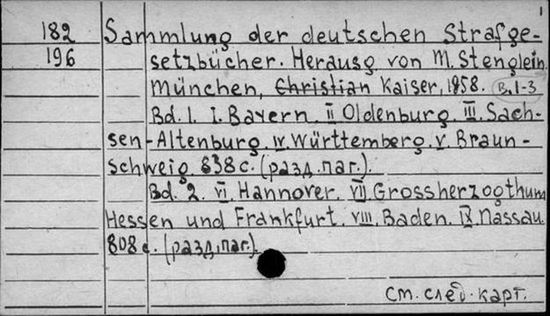 1
182 Sammlung der deutschen Strafge-
196 setzbücher. Herausg von M. Stenglein.
München, Christian Kaiser, 1858. B. 1-3
Bd. 1. I. Bayern. II Oldenburg. III. Sach-
sen-Altenburg. IV. Württemberg. V. Braun-
schweig 838 с. (разд. паг.).
Bd. 2. VI. Hannover. VII Grossherzogthum
Hessen und Frankfurt. VIII. Baden. IX Nassau.
808 с. (разд. паг.).
См. след. карт.